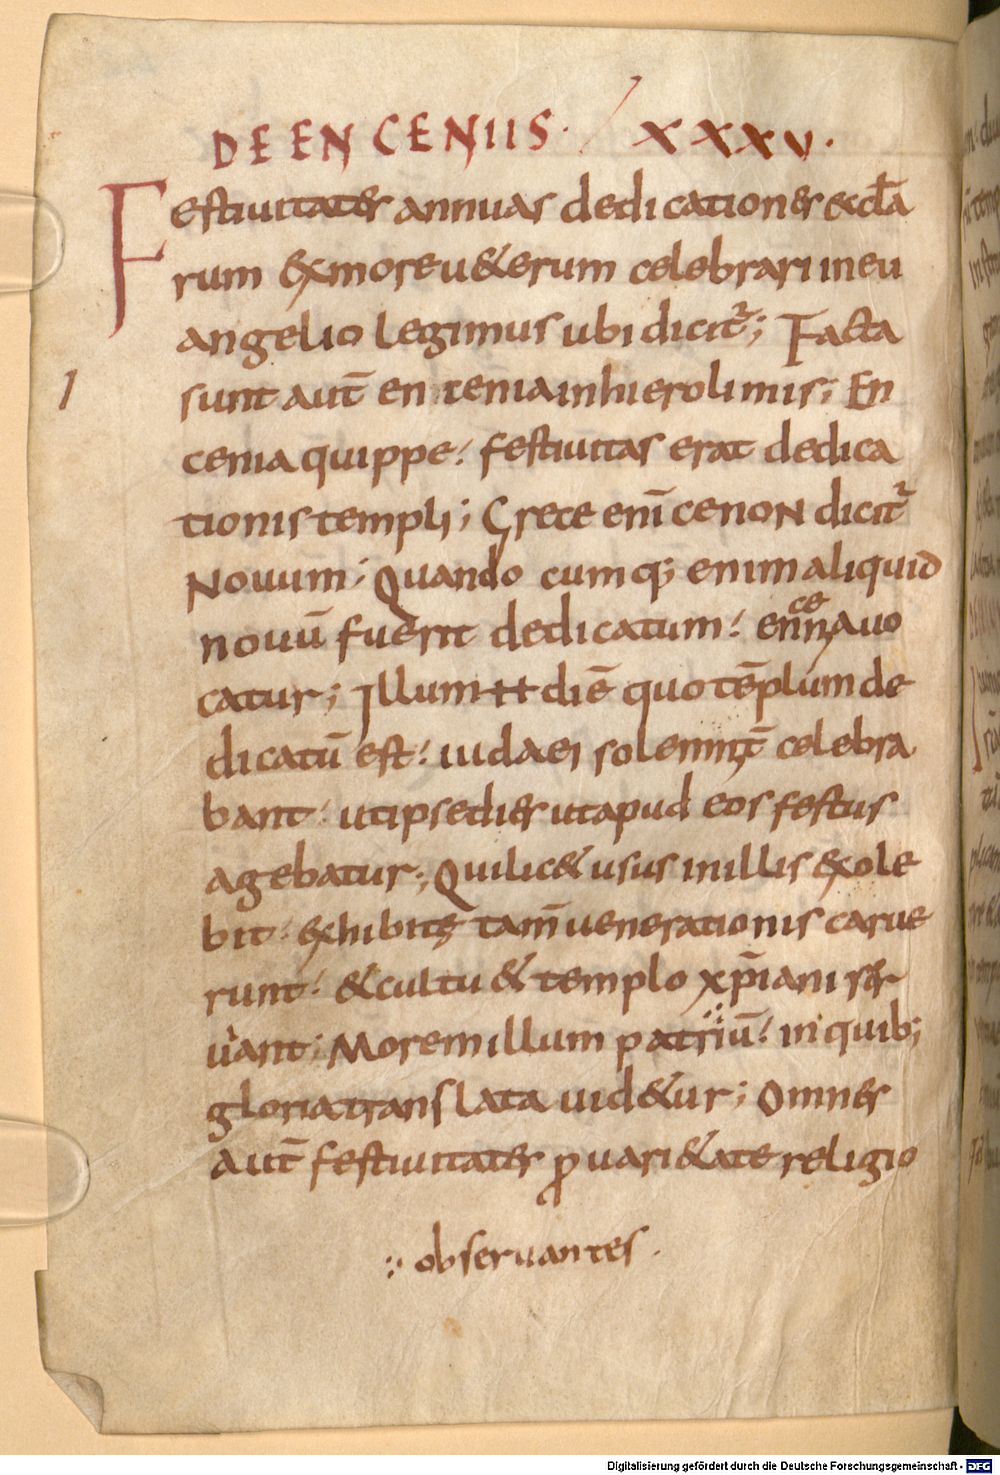 DE ENCENIIS· / XXXV·
Festiuitates annuas dedicationes æccl̄a
rum ex more ueterum celebrari in eu
angelio legimus ubi dicit᷑; Facta
1
sunt aut̄ encenia in hierolimis; En
cenia quippe: festiuitas erat dedica
tionis templi; Grece eni᷑ cenon dicit᷑
Nouum; Quandocumq; enim aliquid
nouū fuerit dedicatum: encenia uo
catur; Illum diē quo tēplum de
dicatū est: iudaei solemnit̄ celebra
bant: ut ipse dies ut apud eos festus
agebatur; Qui licet usus in illis exole
bit: exhibitę tam̄ uenerationis carue
runt: & cultu & templo xp̄iani
uant; Morem illum patriū: in quib;
gloria translata uidetur; Omnes
aut̄ festiuitates ꝓ uarietate religio
observantes.
Digitalisierung gefördert durch die Deutsche Forschungsgemeinschaft - DFG